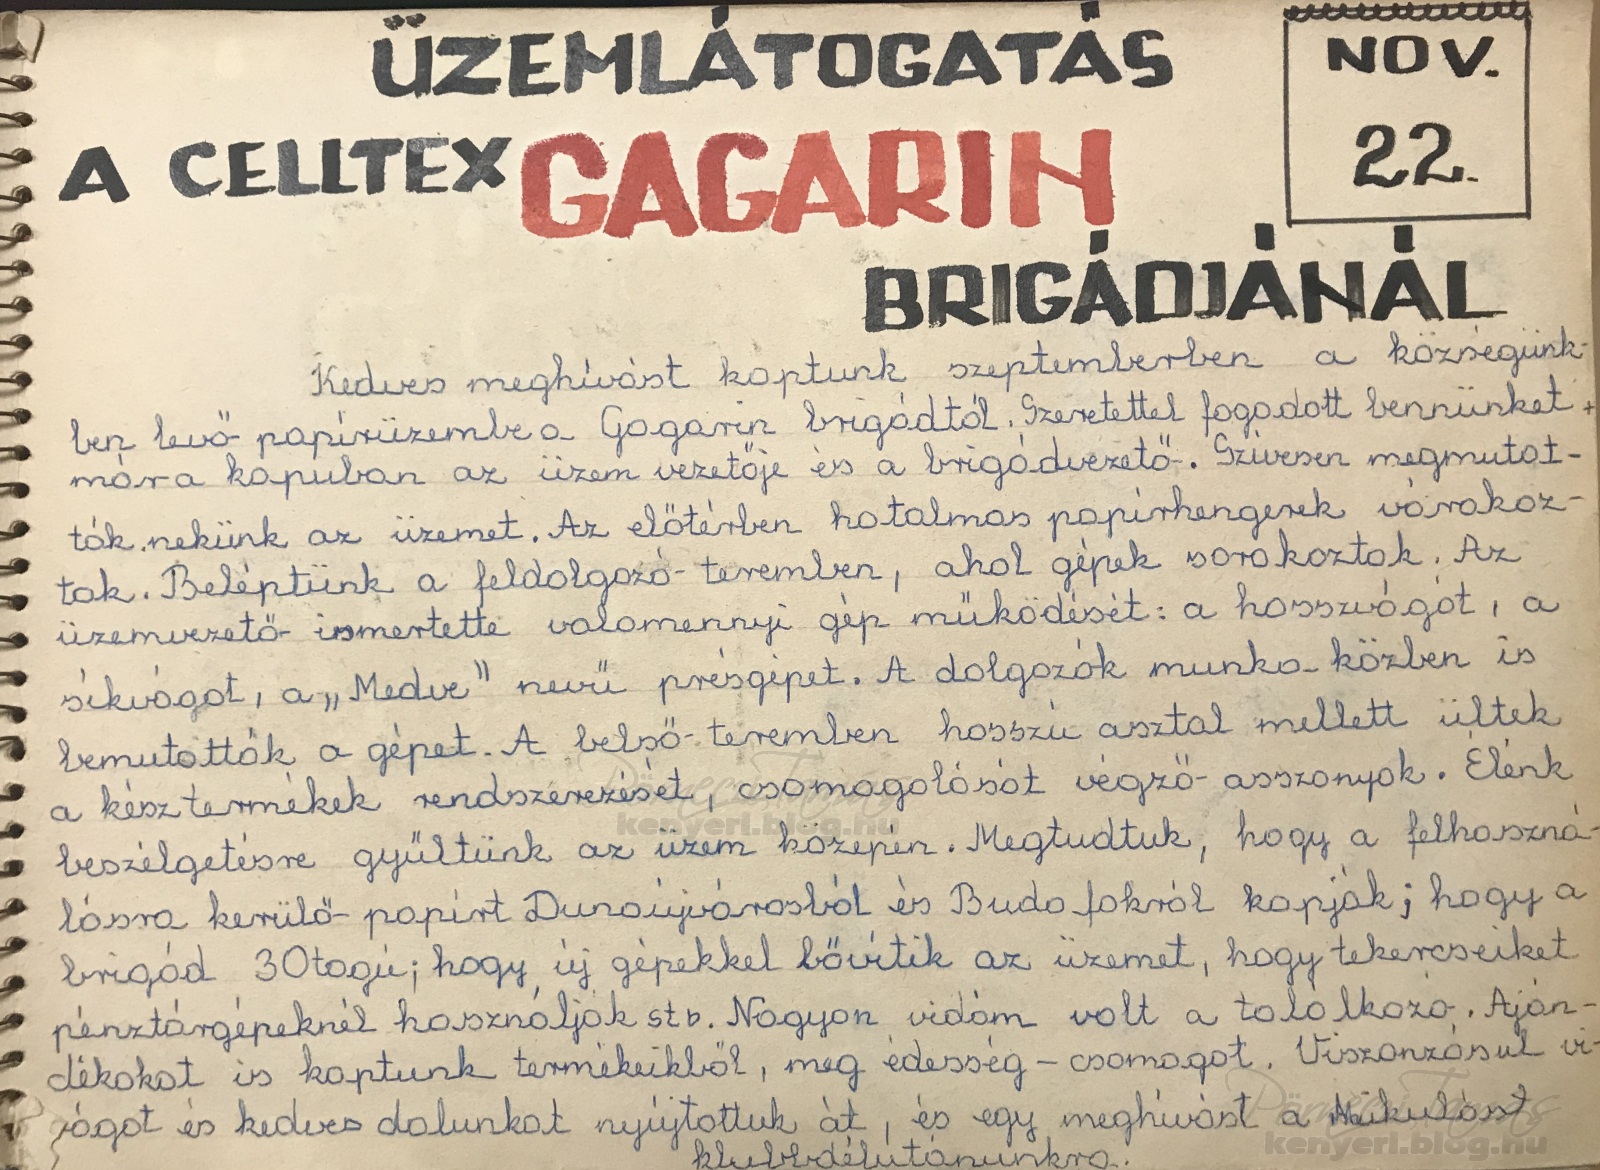 ÜZEMLÁTOGATÁS
NOV.
22.
A CELLTEX GAGARIN
BRIGÁDJÁNÁL
Kedves meghívást kaptunk szeptemberben a községünk-
ben levő papírüzembe a Gagarin brigádtól. Szeretettel fogadott bennünket
már a kapuban az üzem vezetője és a brigádvezető. Szívesen megmutat-
ták nekünk az üzemet. Az előtérben hatalmas papírhengerek várakoz-
tak. Beléptünk a feldolgozó teremben, ahol gépek sorakoztak. Az
üzemvezető ismertette valamennyi gép működését: a hosszvágót, a
síkvágot, a „Medve" nevű présgépet. A dolgozók munka közben is
bemutatták a gépet. A belső teremben hosszú asztal mellett ültek
a késztermékek rendszerezését, csomagolását végző asszonyok. Élénk
beszélgetésre gyűltünk az üzem közepén. Megtudtuk, hogy a felhaszná-
lásra kerülő papírt Dunaújvárosból és Budafokról kapják; hogy a
brigád 30tagú; hogy új gépekkel bővítik az üzemet, hogy tekercseiket
pénztárgépeknél használják stb. Nagyon vidám volt a talalkozó. Aján-
dékokat is kaptunk termékeikből, meg édesség-csomagot. Viszonzásul vi-
rágot és kedves dalunkat nyújtottuk át, és egy meghívást a Mikulást
klubdélutánunkra.
kenyeri.blog.hu
kenyeri.blog.hu